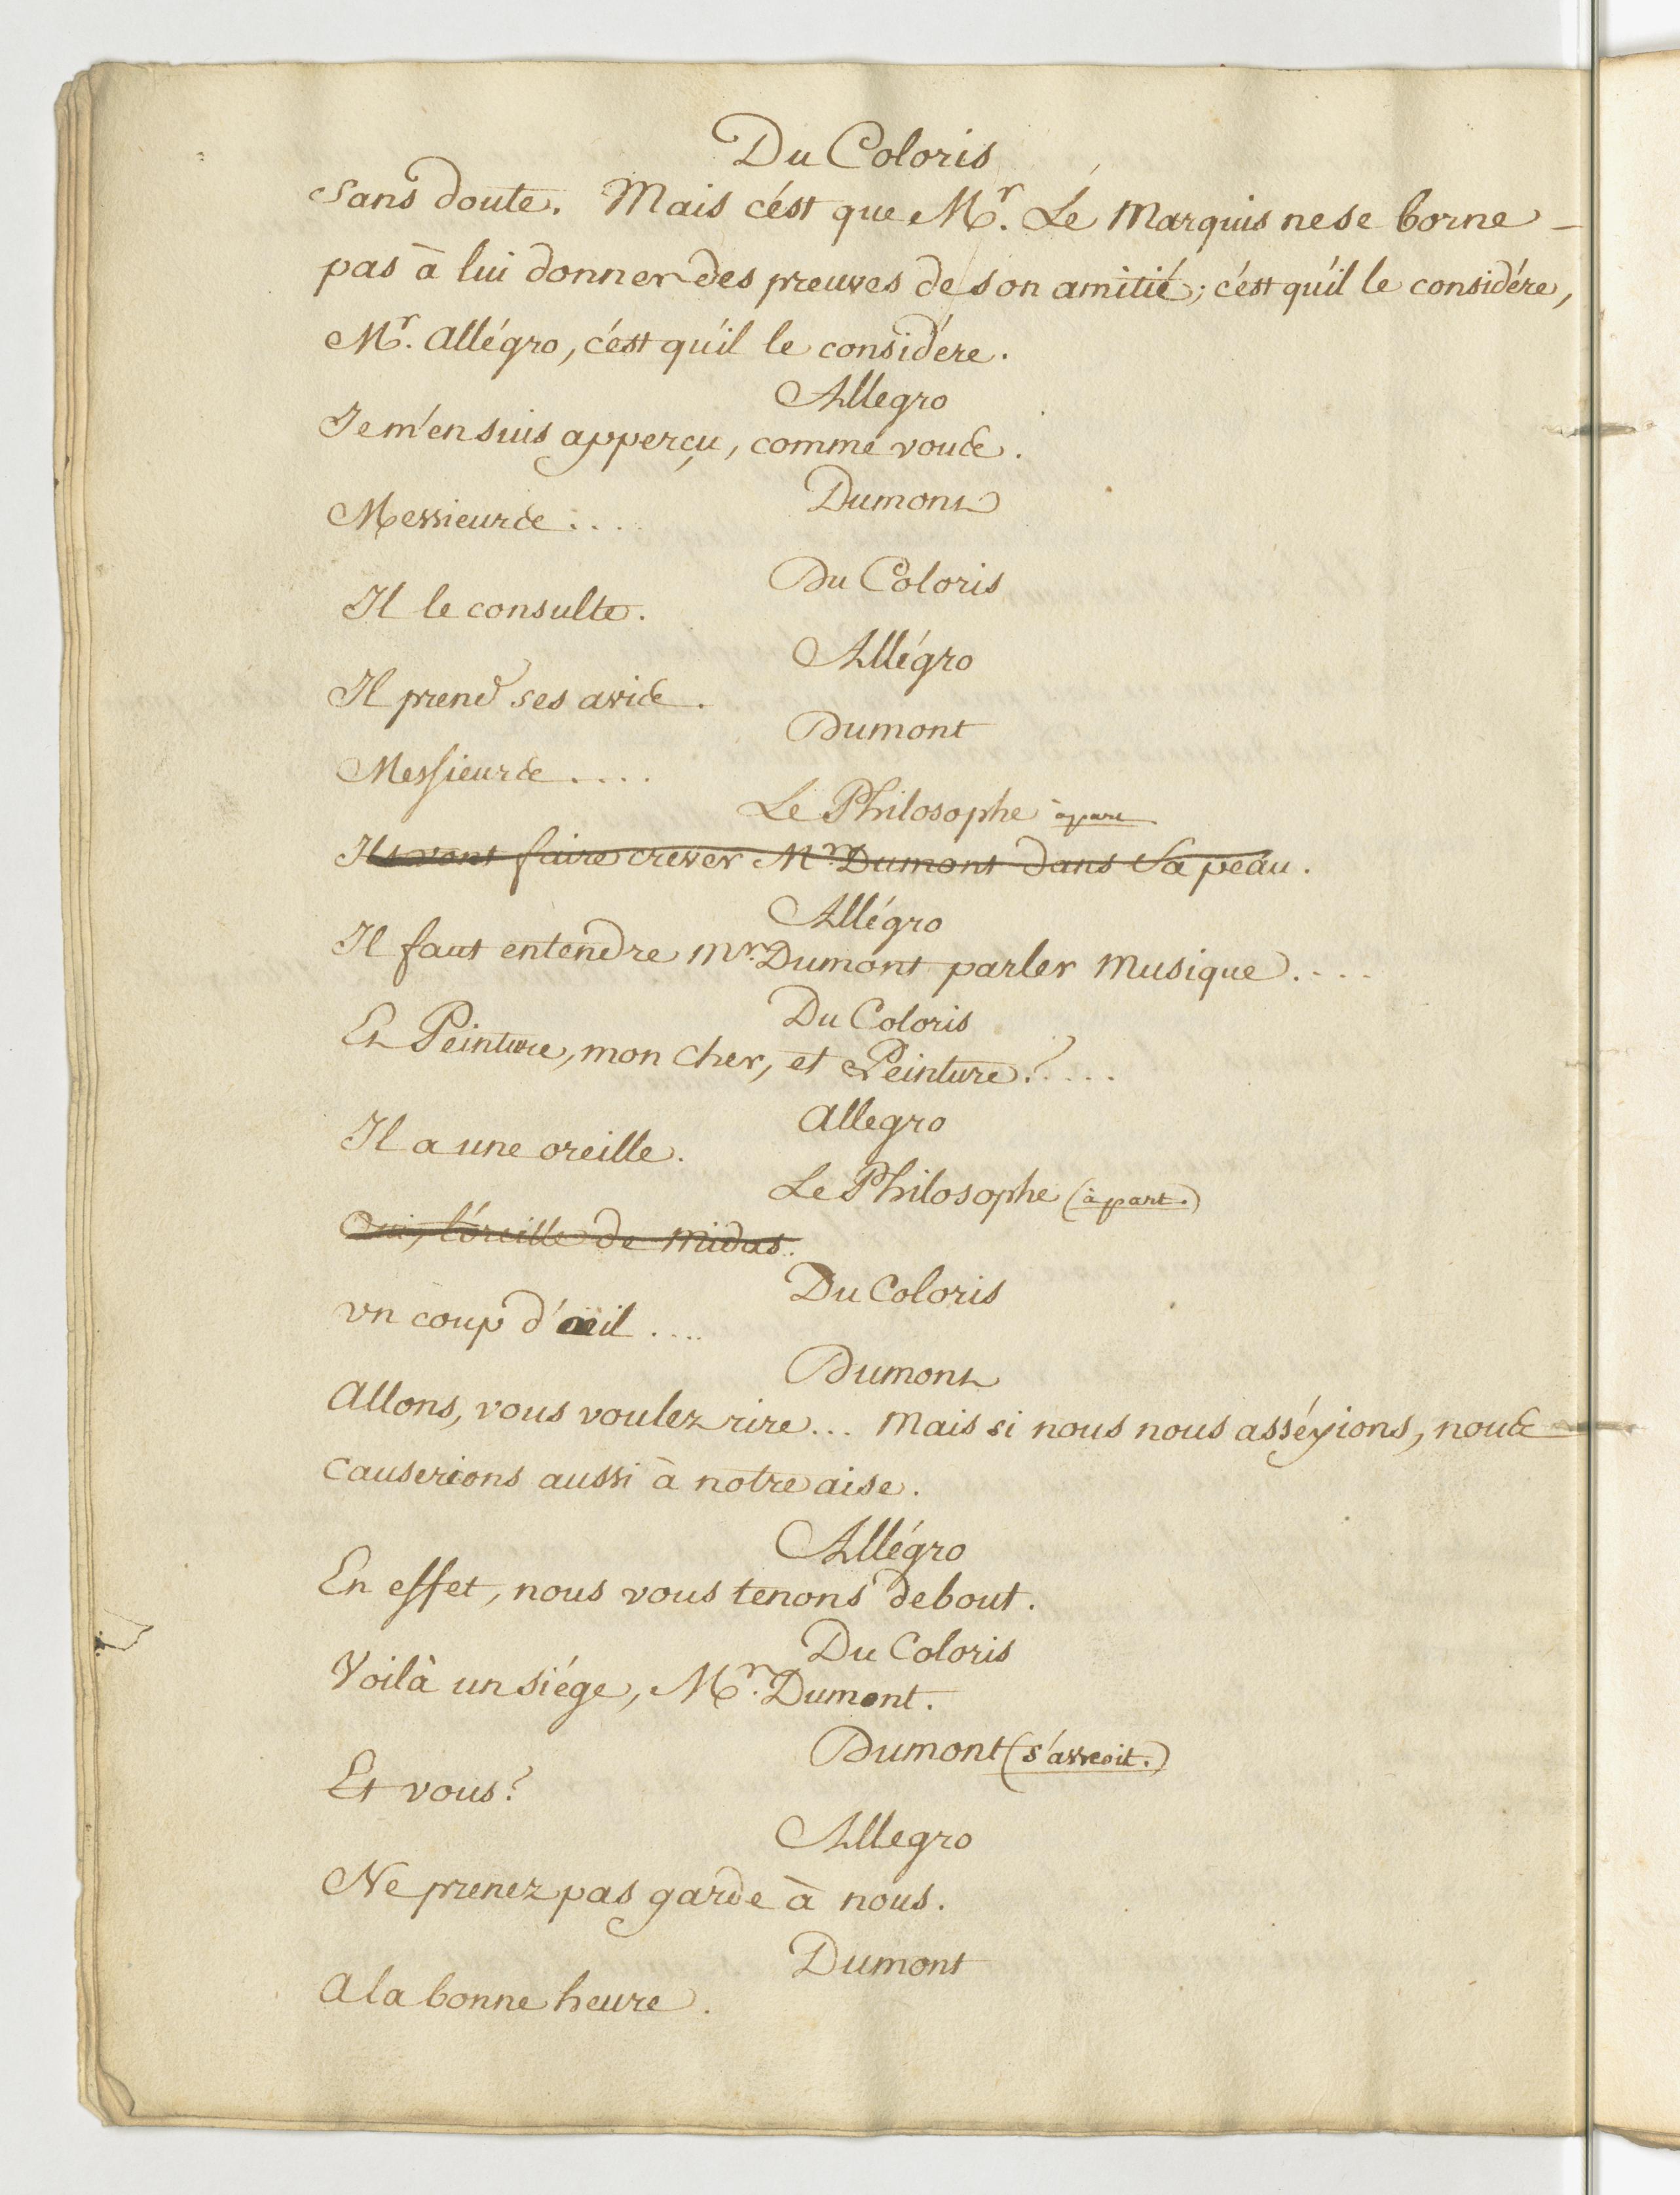 Du Coloris
Sans doute. Mais c'ést que Mr. Le Marquis ne se borne
pas à lui donner des preuves de son amitié; c'ést qu'il le considére,
Mr. Allégro, c'ést qu'il le considére.
Allegro
Je m'en suis apperçu, comme vous.
Dumont
Messieurs....
Du Coloris
Il le consulte.
Allégro
Il prend ses avis.
Dumont
Messieurs....
Le Philosophe à part
Ils vont faire crever Mr. Dumont dans sa peau.
Allégro
Il faut entendre Mr. Dumont parler Musique....
Du Coloris
Et Peinture, mon cher, et Peinture?....
Allegro
Il a une oreille.
Le Philosophe (à part.)
Oui, l'oreille de Midas.
Du Coloris
un coup d'œil....
Dumont
Allons, vous voulez rire... Mais si nous nous asséyions, nous
causerions aussi à notre aise.
Allégro
En effet, nous vous tenons debout.
Du Coloris
Voilà un siége, Mr. Dumont.
Dumont (s'asseoit.)
Et vous?
Allegro
Ne prenez pas garde à nous.
Dumont
A la bonne heure.